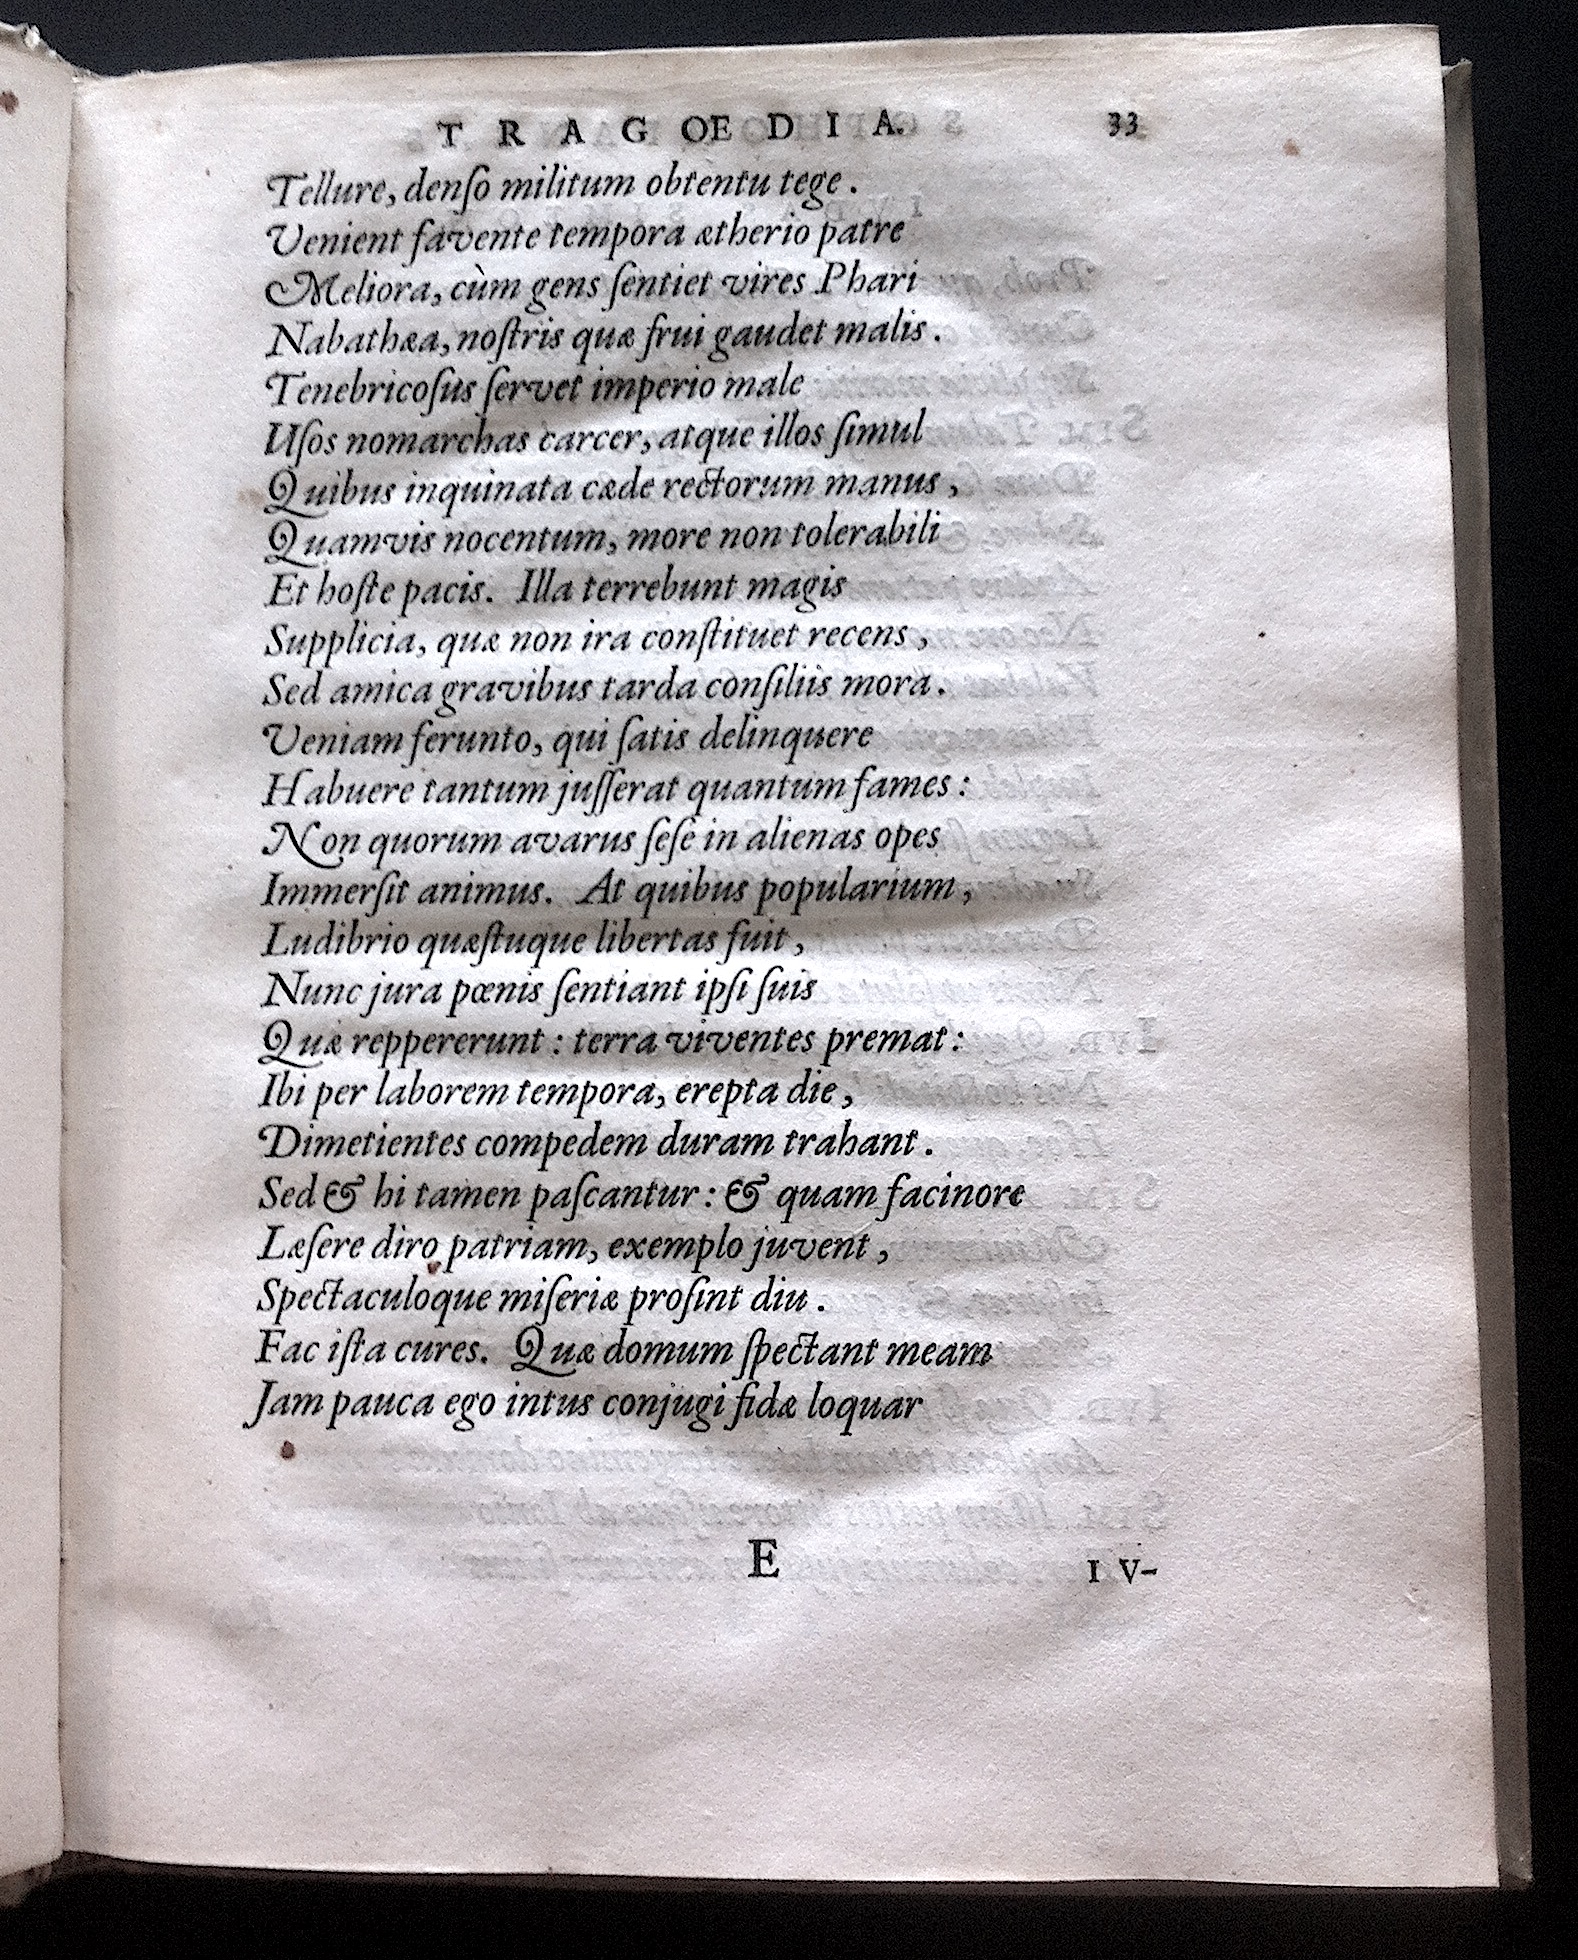 TRAGOEDIA. 33
Tellure, denſo militum obtentu tege.
Venient favente tempora ætherio patre
Meliora, cùm gens ſentiet vires Phari
Nabathæa, noſtris quæ frui gaudet malis.
Tenebricoſus ſervet imperio male
Uſos nomarchas carcer, atque illos ſimul
Quibus inquinata cæde rectorum manus,
Quamvis nocentum, more non tolerabili
Et hoſte pacis. Illa terrebunt magis
Supplicia, quæ non ira conſtituet recens,
Sed amica gravibus tarda conſiliis mora.
Veniam ferunto, qui ſatis delinquere
Habuere tantum juſſerat quantum fames:
Non quorum avarus ſeſe in alienas opes
Immerſit animus. At quibus popularium,
Ludibrio quæſtuque libertas fuit,
Nunc jura pœnis ſentiant ipſi ſuis
Quæ reppererunt: terra viventes premat:
Ibi per laborem tempora, erepta die,
Dimetientes compedem duram trahant.
Sed & hi tamen paſcantur: & quam facinore
Læſere diro patriam, exemplo juvent,
Spectaculoque miſeriæ proſint diu.
Fac iſta cures. Quæ domum ſpectant meam
Jam pauca ego intus conjugi fidæ loquar
E IV-